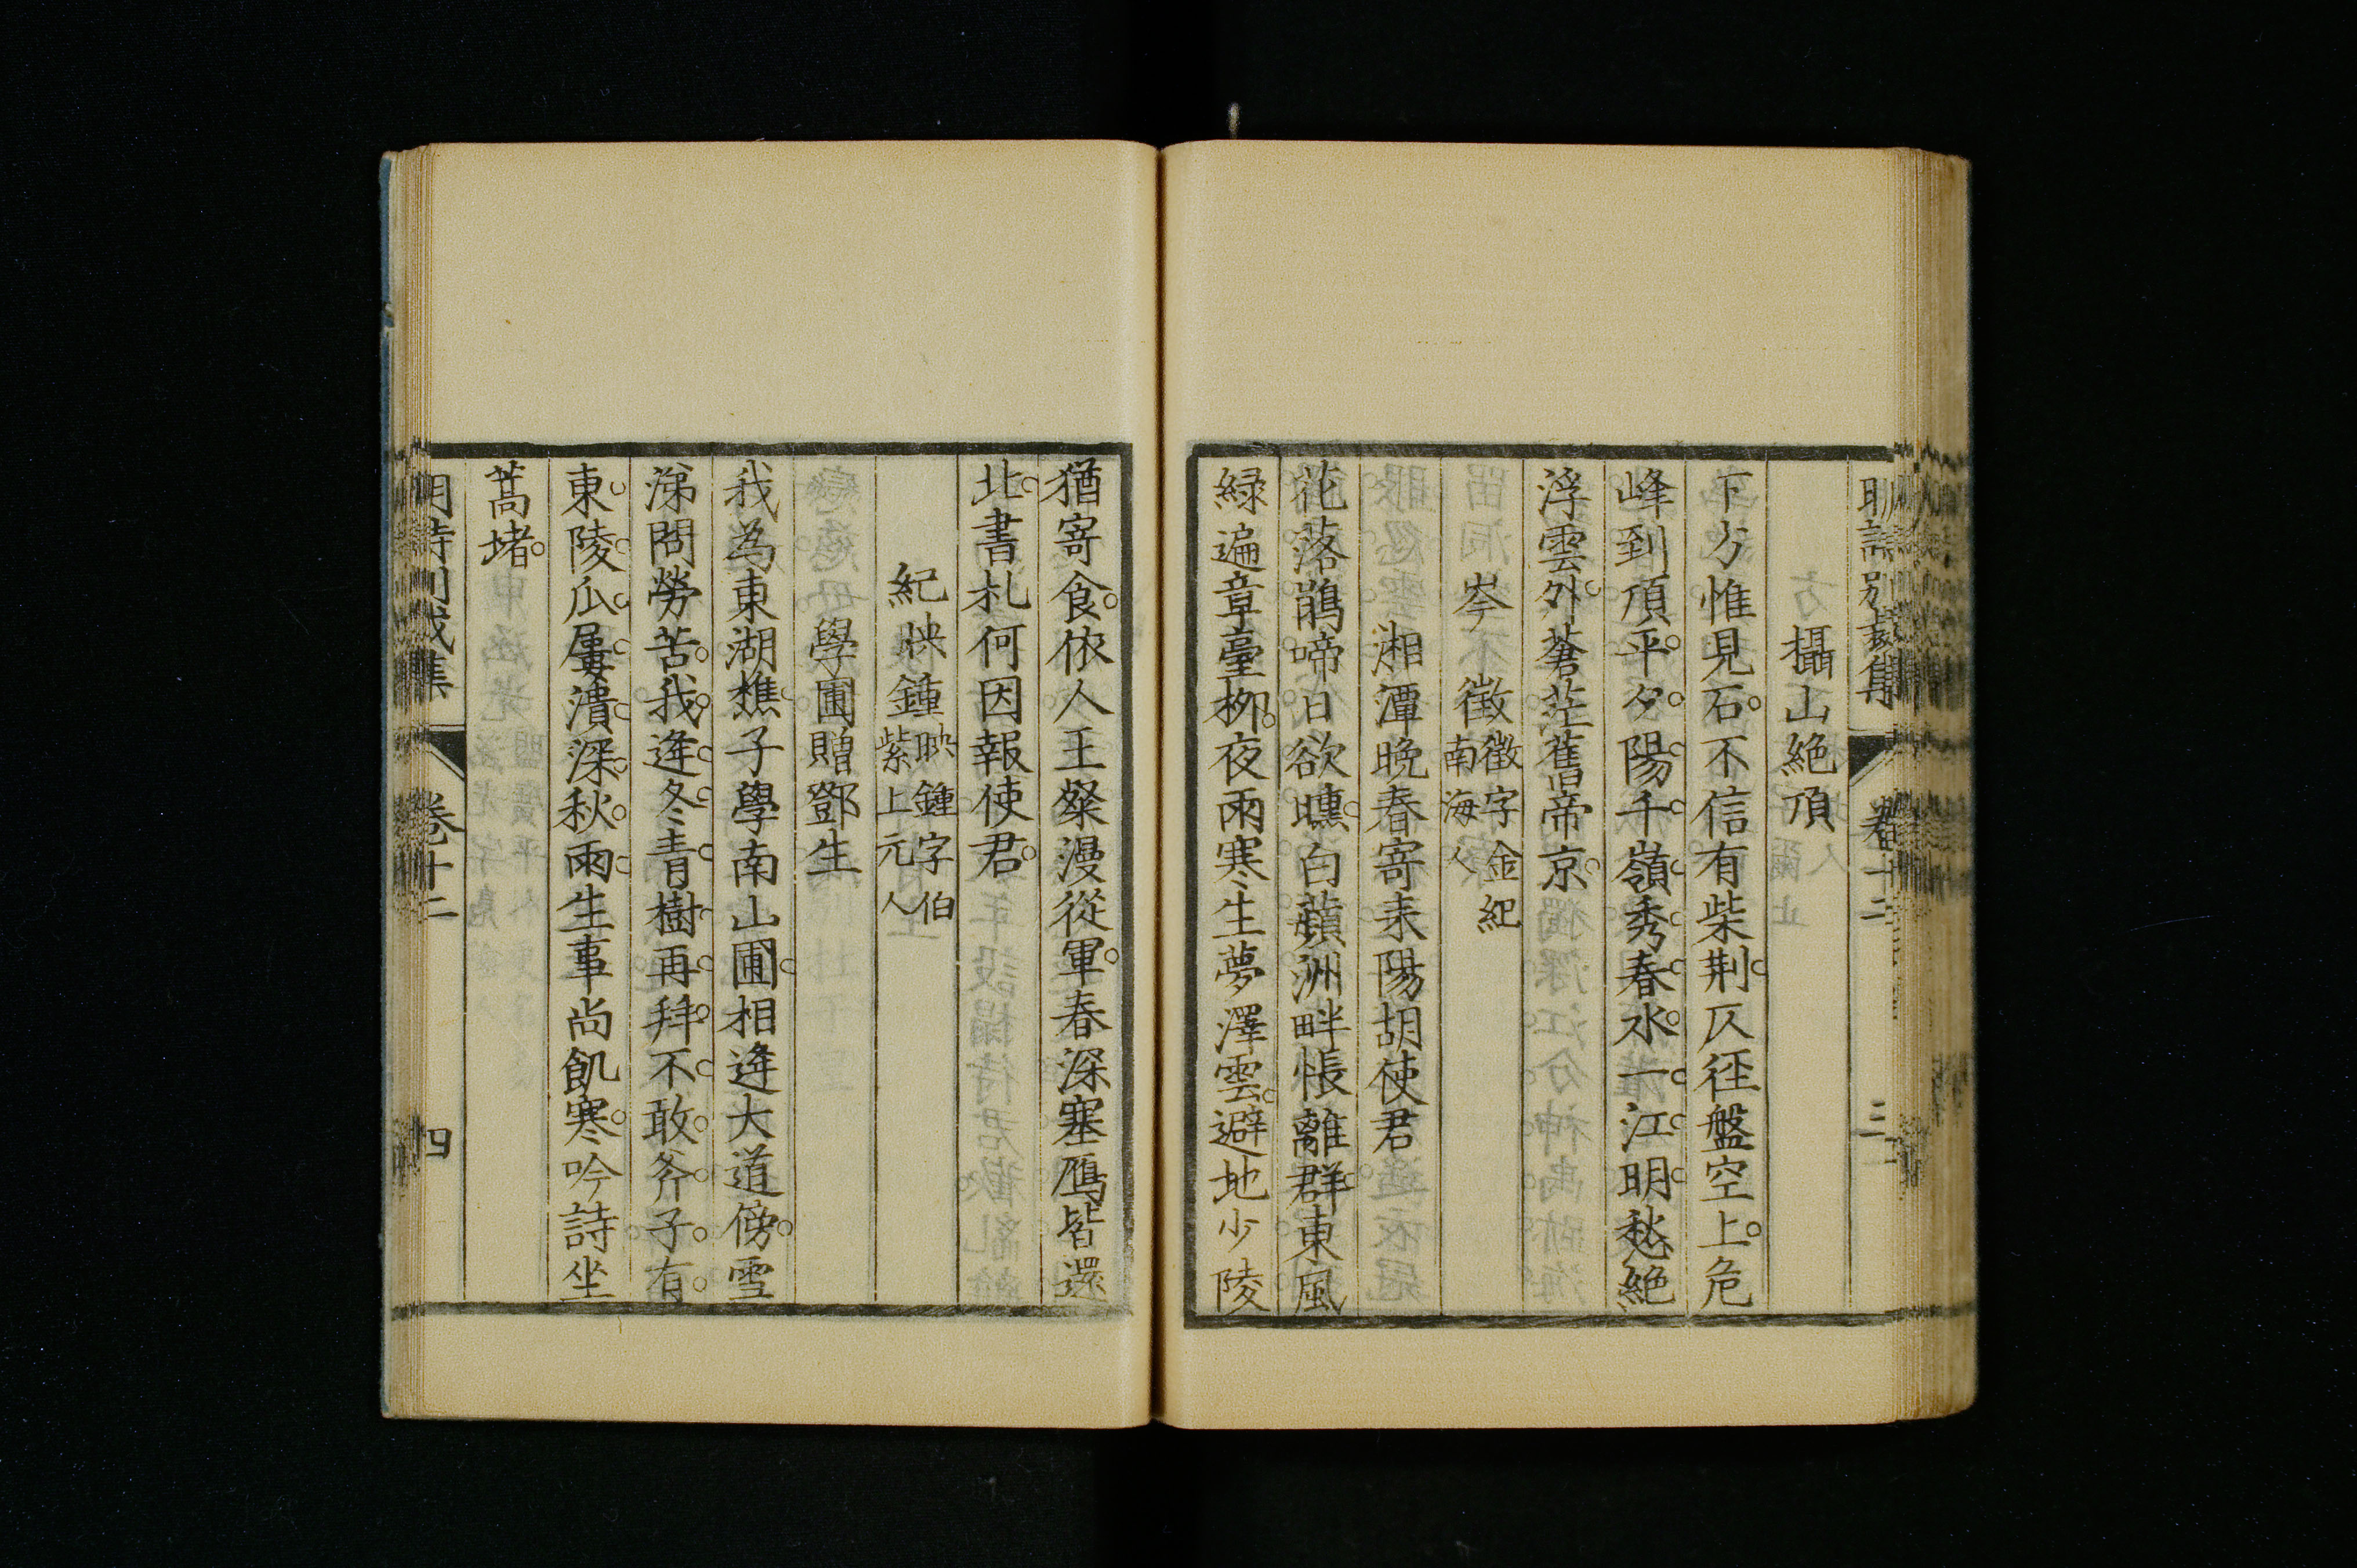 明詩別裁集 卷十二 三
攝山絶頂
下方惟見石不信有柴荆仄徑盤空上危
峰到頂平夕陽千嶺秀春水一江明愁絶
浮雲外蒼茫舊帝京
岑徵徵字金紀南海人
湘潭晚春寄耒陽胡使君
花落鵑啼日欲曛白蘋洲畔悵離群東風
綠遍章臺柳夜雨寒生夢澤雲避地少陵
猶寄食依人王粲漫從軍春深塞鴈皆還
北書札何因報使君
紀映鍾映鍾字伯紫上元人
學圃贈鄧生
我為東湖樵子學南山圃相逢大道傍雪
涕問勞苦我逢冬青樹再拜不敢斧子有
東陵瓜屢潰深秋雨生事尚飢寒吟詩坐
蒿堵
明詩別裁集 卷十二 四